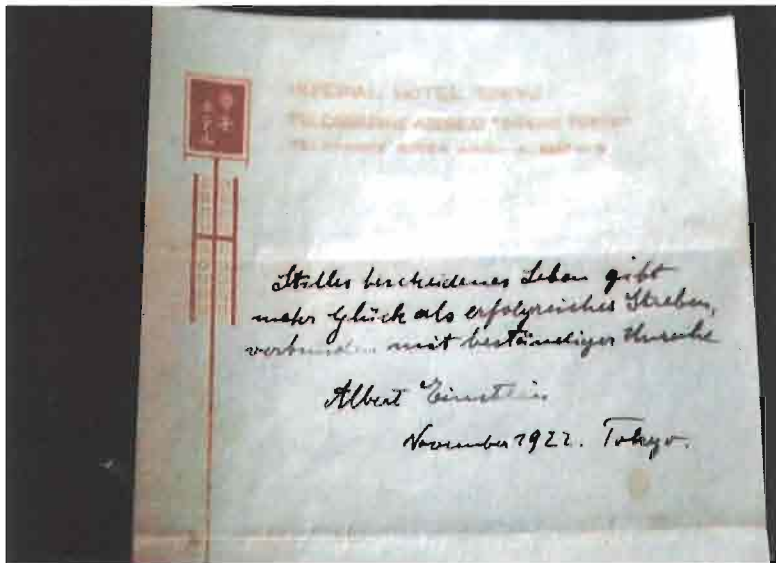 IMPERIAL HOTEL TOKYO
Stilles bescheidenes Leben gibt
mehr Glück als erfolgreiches Streben,
verbunden mit beständiger Unruhe
Albert Einstein
November 1922. Tokyo.